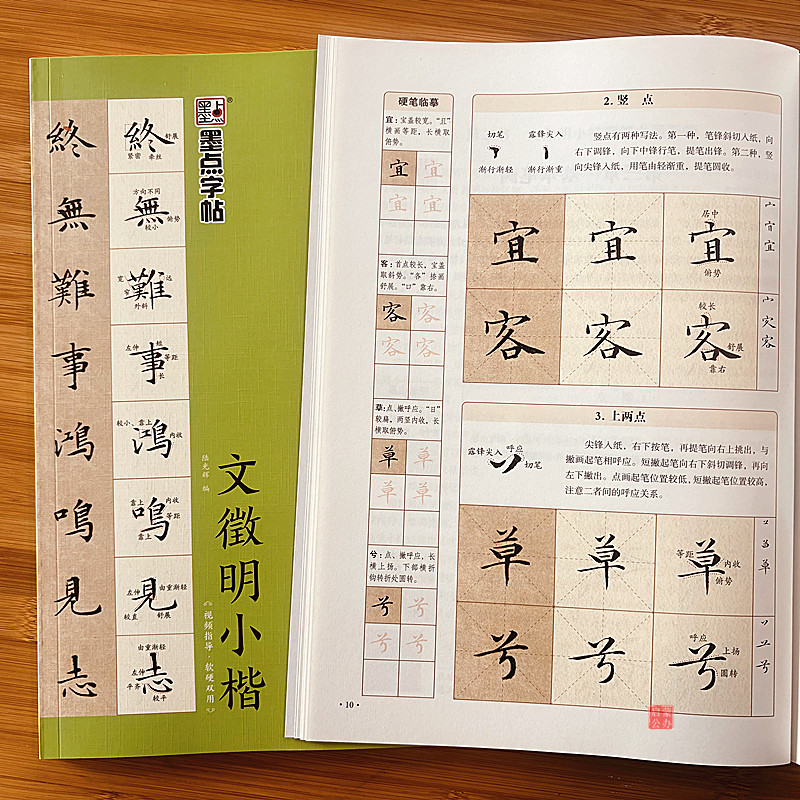 終
無
難
事
鴻
鳴
見
志
終
舒展
紧密 牵丝
方向不同
無
俯势
较小
宽
远
窄
難
外斜
左伸
短
事
等距
长
较小、靠上
鴻
内收
靠上
鳴
内收
等距
靠上
左伸
見
由重渐轻
较直
舒展
由重渐轻
左伸
志
平齐
较平
墨点
®
墨点字帖
陆光辉 编
文徵明小楷
《视频指导·软硬双用》
硬笔临摹
宜：宝盖较宽。“且”
横画等距，长横取
俯势。
宜 宜
宜 宜
客：首点较长，宝盖
取斜势。“各”捺画
舒展。“口”靠右。
客 客
客 客
草：点、撇呼应。“日”
较扁，两竖内收，长
横取俯势。
草 草
草 草
兮：点、撇呼应，长
横上扬。下部横折
钩转折处圆转。
兮 兮
兮 兮
·10·
2. 竖 点
切笔 露锋尖入
渐行渐轻 渐行渐重
竖点有两种写法。第一种，笔锋斜切入纸，向
右下调锋，向下中锋行笔，提笔出锋。第二种，竖
向尖锋入纸，用笔由轻渐重，提笔圆收。
宜 宜 宜
居中
俯势
宜
客 客 客
较长
舒展
靠右
客
3. 上两点
露锋尖入 呼应 切笔
尖锋入纸，右下按笔，再提笔向右上挑出，与
撇画起笔相呼应。短撇起笔向右下斜切调锋，再向
左下撇出。点画起笔位置较低，短撇起笔位置较高，
注意二者间的呼应关系。
草 草 草
等距
内收
俯势
草
兮 兮 兮
呼应
上扬
圆转
兮